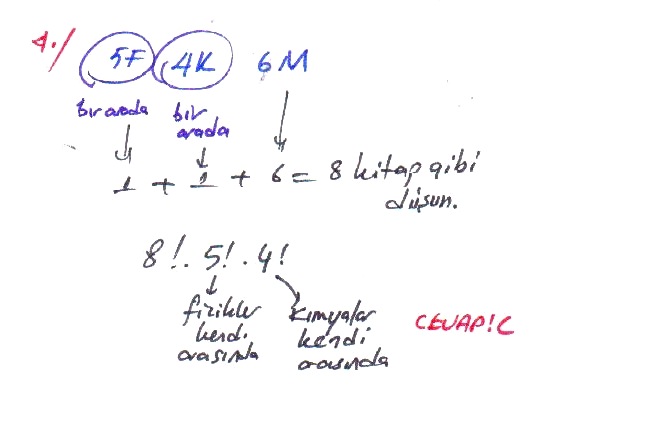 4./ 5F 4K 6M
bir arada bir arada
1 + 1 + 6 = 8 kitap gibi
düşun.
8!. 5! . 4!
fizikler kendi arasında
kımyalar kendi arasında
CEVAP!C